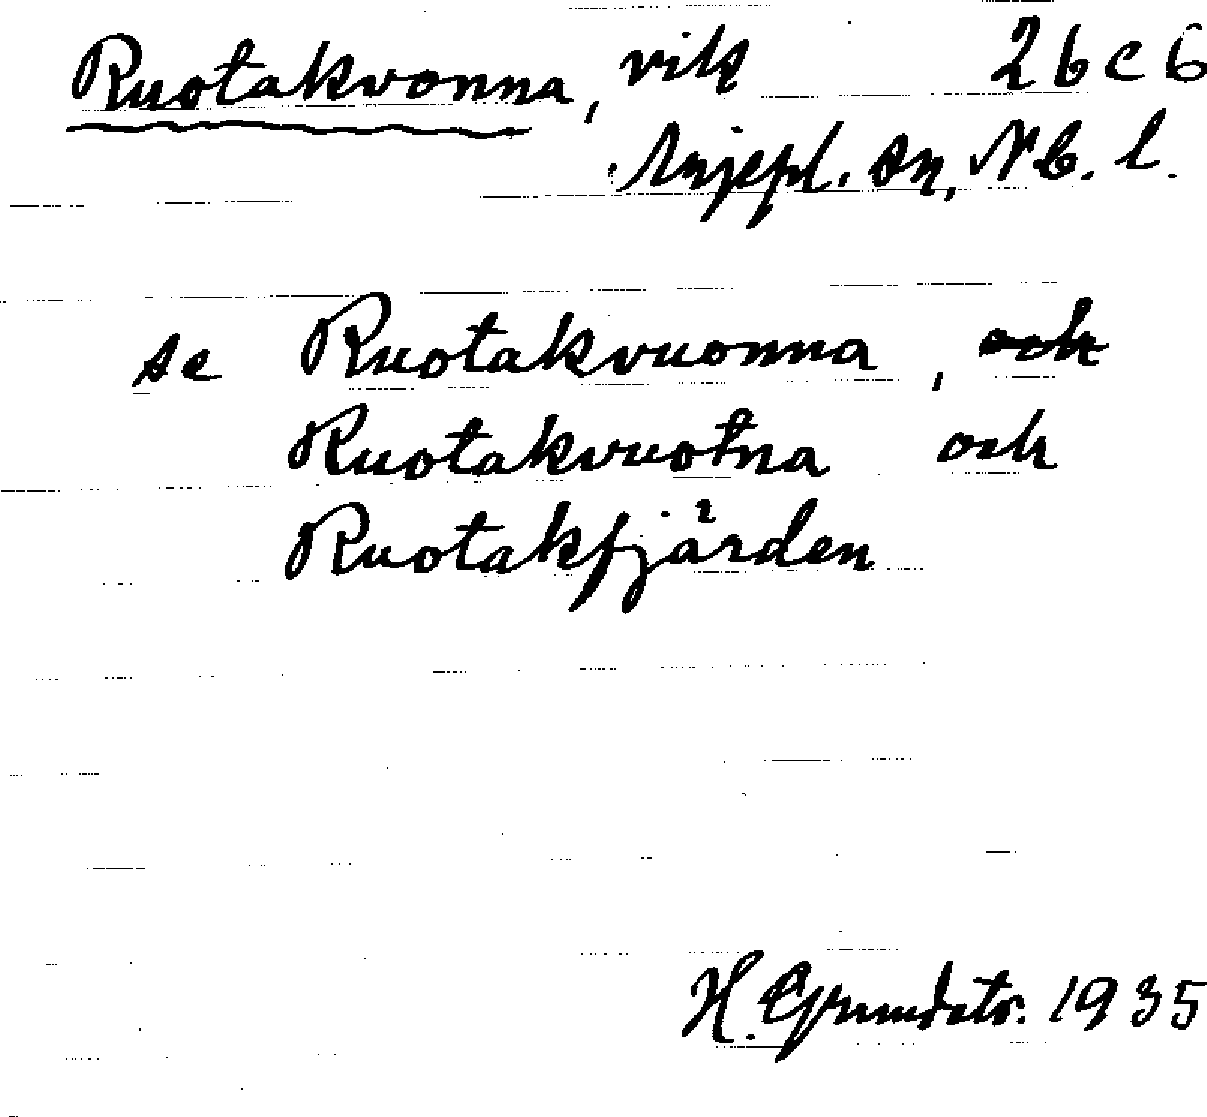 Ruotakvonna, vik 26c6
Arjepl. sn, Nb. l.
se Ruotakvuonna, och
Ruotakvuotna och
Ruotakfjärden
H. Grundstr. 1935